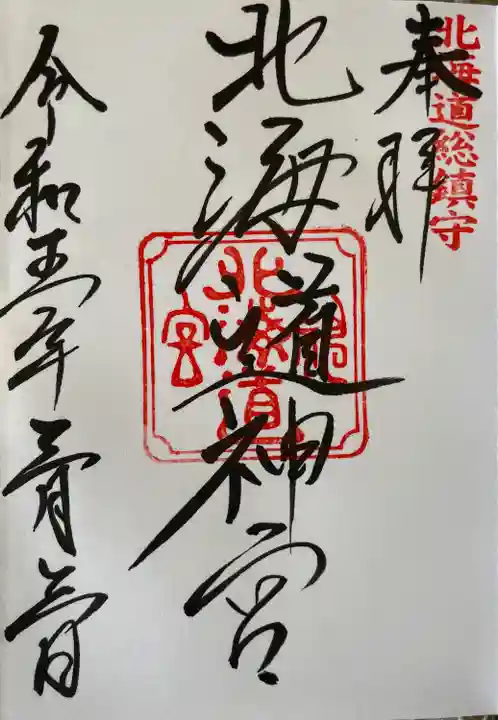 北海道総鎮守
奉拝
北海道神宮
北海道
宮
令和五年三月